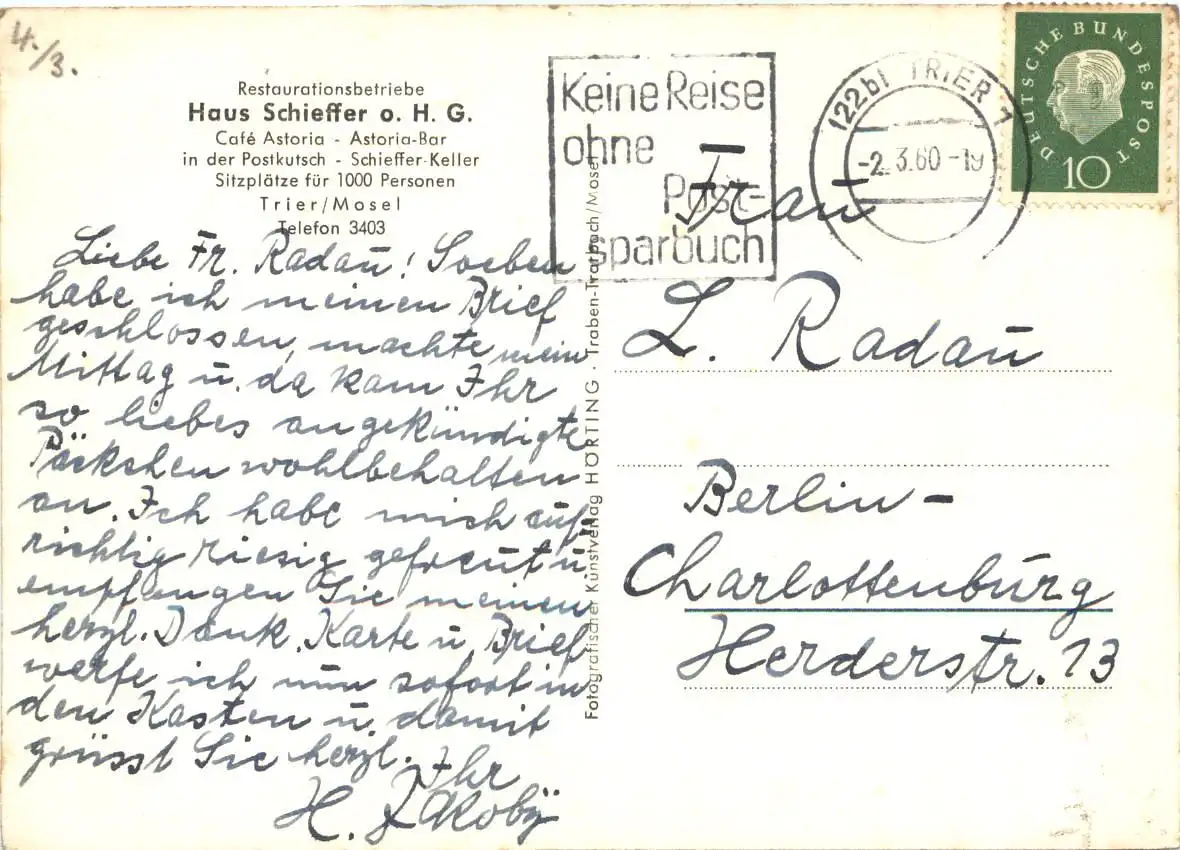 4./3.
Restaurationsbetriebe
Haus Schieffer o. H. G.
Café Astoria - Astoria-Bar
in der Postkutsch - Schieffer-Keller
Sitzplätze für 1000 Personen
Trier/Mosel
Telefon 3403
Liebe Fr. Radau! Soeben
habe ich meinen Brief
geschlossen, machte mein
Mittag u. da kam Ihr
so liebes angekündigte
Päckchen wohlbehalten
an. Ich habe mich auf-
richtig riesig gefreut u.
empfangen Sie meinen
herzl. Dank. Karte u. Brief
werfe ich nun sofort in
den Kasten u. damit
grüsst Sie herzl.
Ihr
H. Jakoby
Fotografischer Kunstverlag HÖRTING · Traben-Trarbach/Mosel
Keine Reise
ohne
Post-
sparbuch
(22b) TRIER 1
-2.3.60-19
DEUTSCHE BUNDESPOST
10
Frau
L. Radau
Berlin-
Charlottenburg
Herderstr. 13